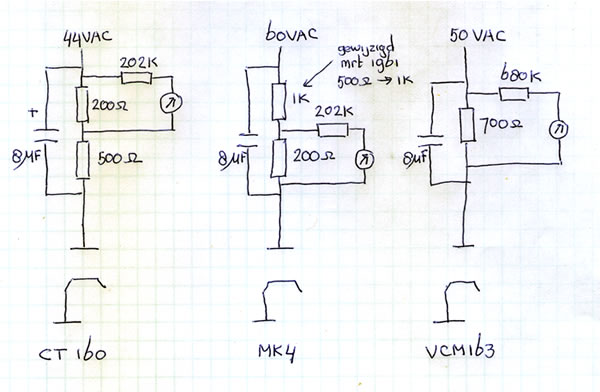 44VAC
202K
200Ω
+
8µF
500Ω
CT 160
60VAC
gewijzigd
mrt 1961
500Ω → 1K
1K
202K
8µF
200Ω
MK4
50 VAC
680K
700Ω
8µF
VCM163